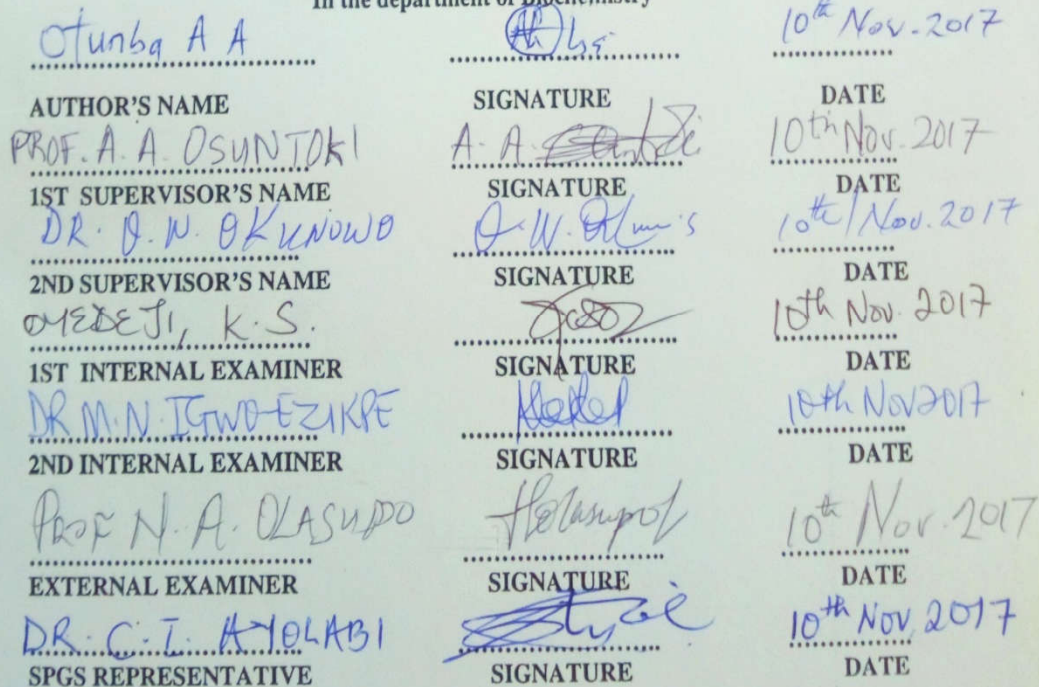 In the department of Biochemistry
Otunba A A 10th Nov. 2017
AUTHOR'S NAME SIGNATURE DATE
PROF. A. A. OSUNTOKI A. A. 10th Nov. 2017
1ST SUPERVISOR'S NAME SIGNATURE DATE
DR. O. W. OKUNOWO O. W. 10th Nov. 2017
2ND SUPERVISOR'S NAME SIGNATURE DATE
OYEDEJI, K. S. 10th Nov. 2017
1ST INTERNAL EXAMINER SIGNATURE DATE
DR M. N. IGWO-EZIKPE 10th Nov 2017
2ND INTERNAL EXAMINER SIGNATURE DATE
PROF N. A. OLASUPO Holasupo 10th Nov. 2017
EXTERNAL EXAMINER SIGNATURE DATE
DR. C. I. AYOLABI 10th Nov, 2017
SPGS REPRESENTATIVE SIGNATURE DATE